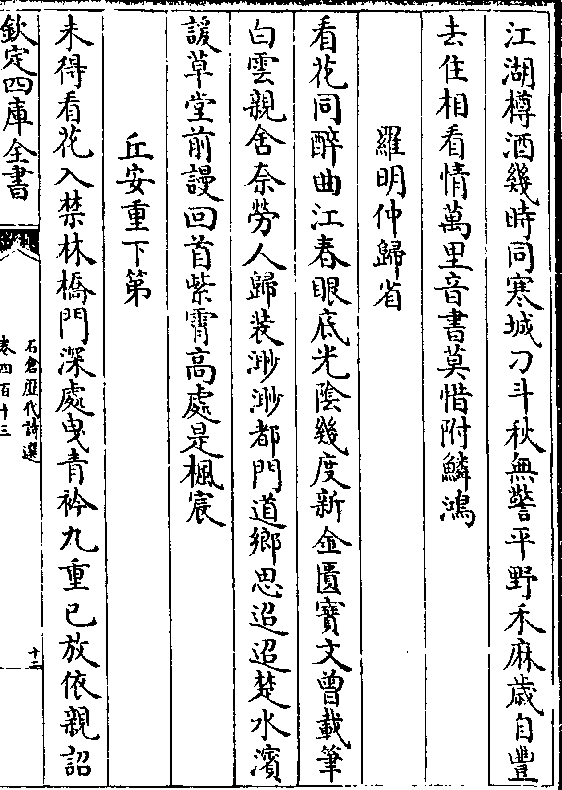 江湖樽酒幾時同寒城刁斗秋無警平野禾麻歲自豐
去住相看情萬里音書莫惜附鱗鴻
羅明仲歸省
看花同醉曲江春眼底光陰幾度新金匱寳文曽載筆
白雲親舍奈勞人歸装渺渺都門道鄉思迢迢楚水濱
諼草堂前謾回首紫霄高處是楓宸
丘安重下第
未得看花入禁林橋門深處曳青衿九重已放依親詔
欽定四庫全書
石倉歴代詩選
卷四百十三
十二